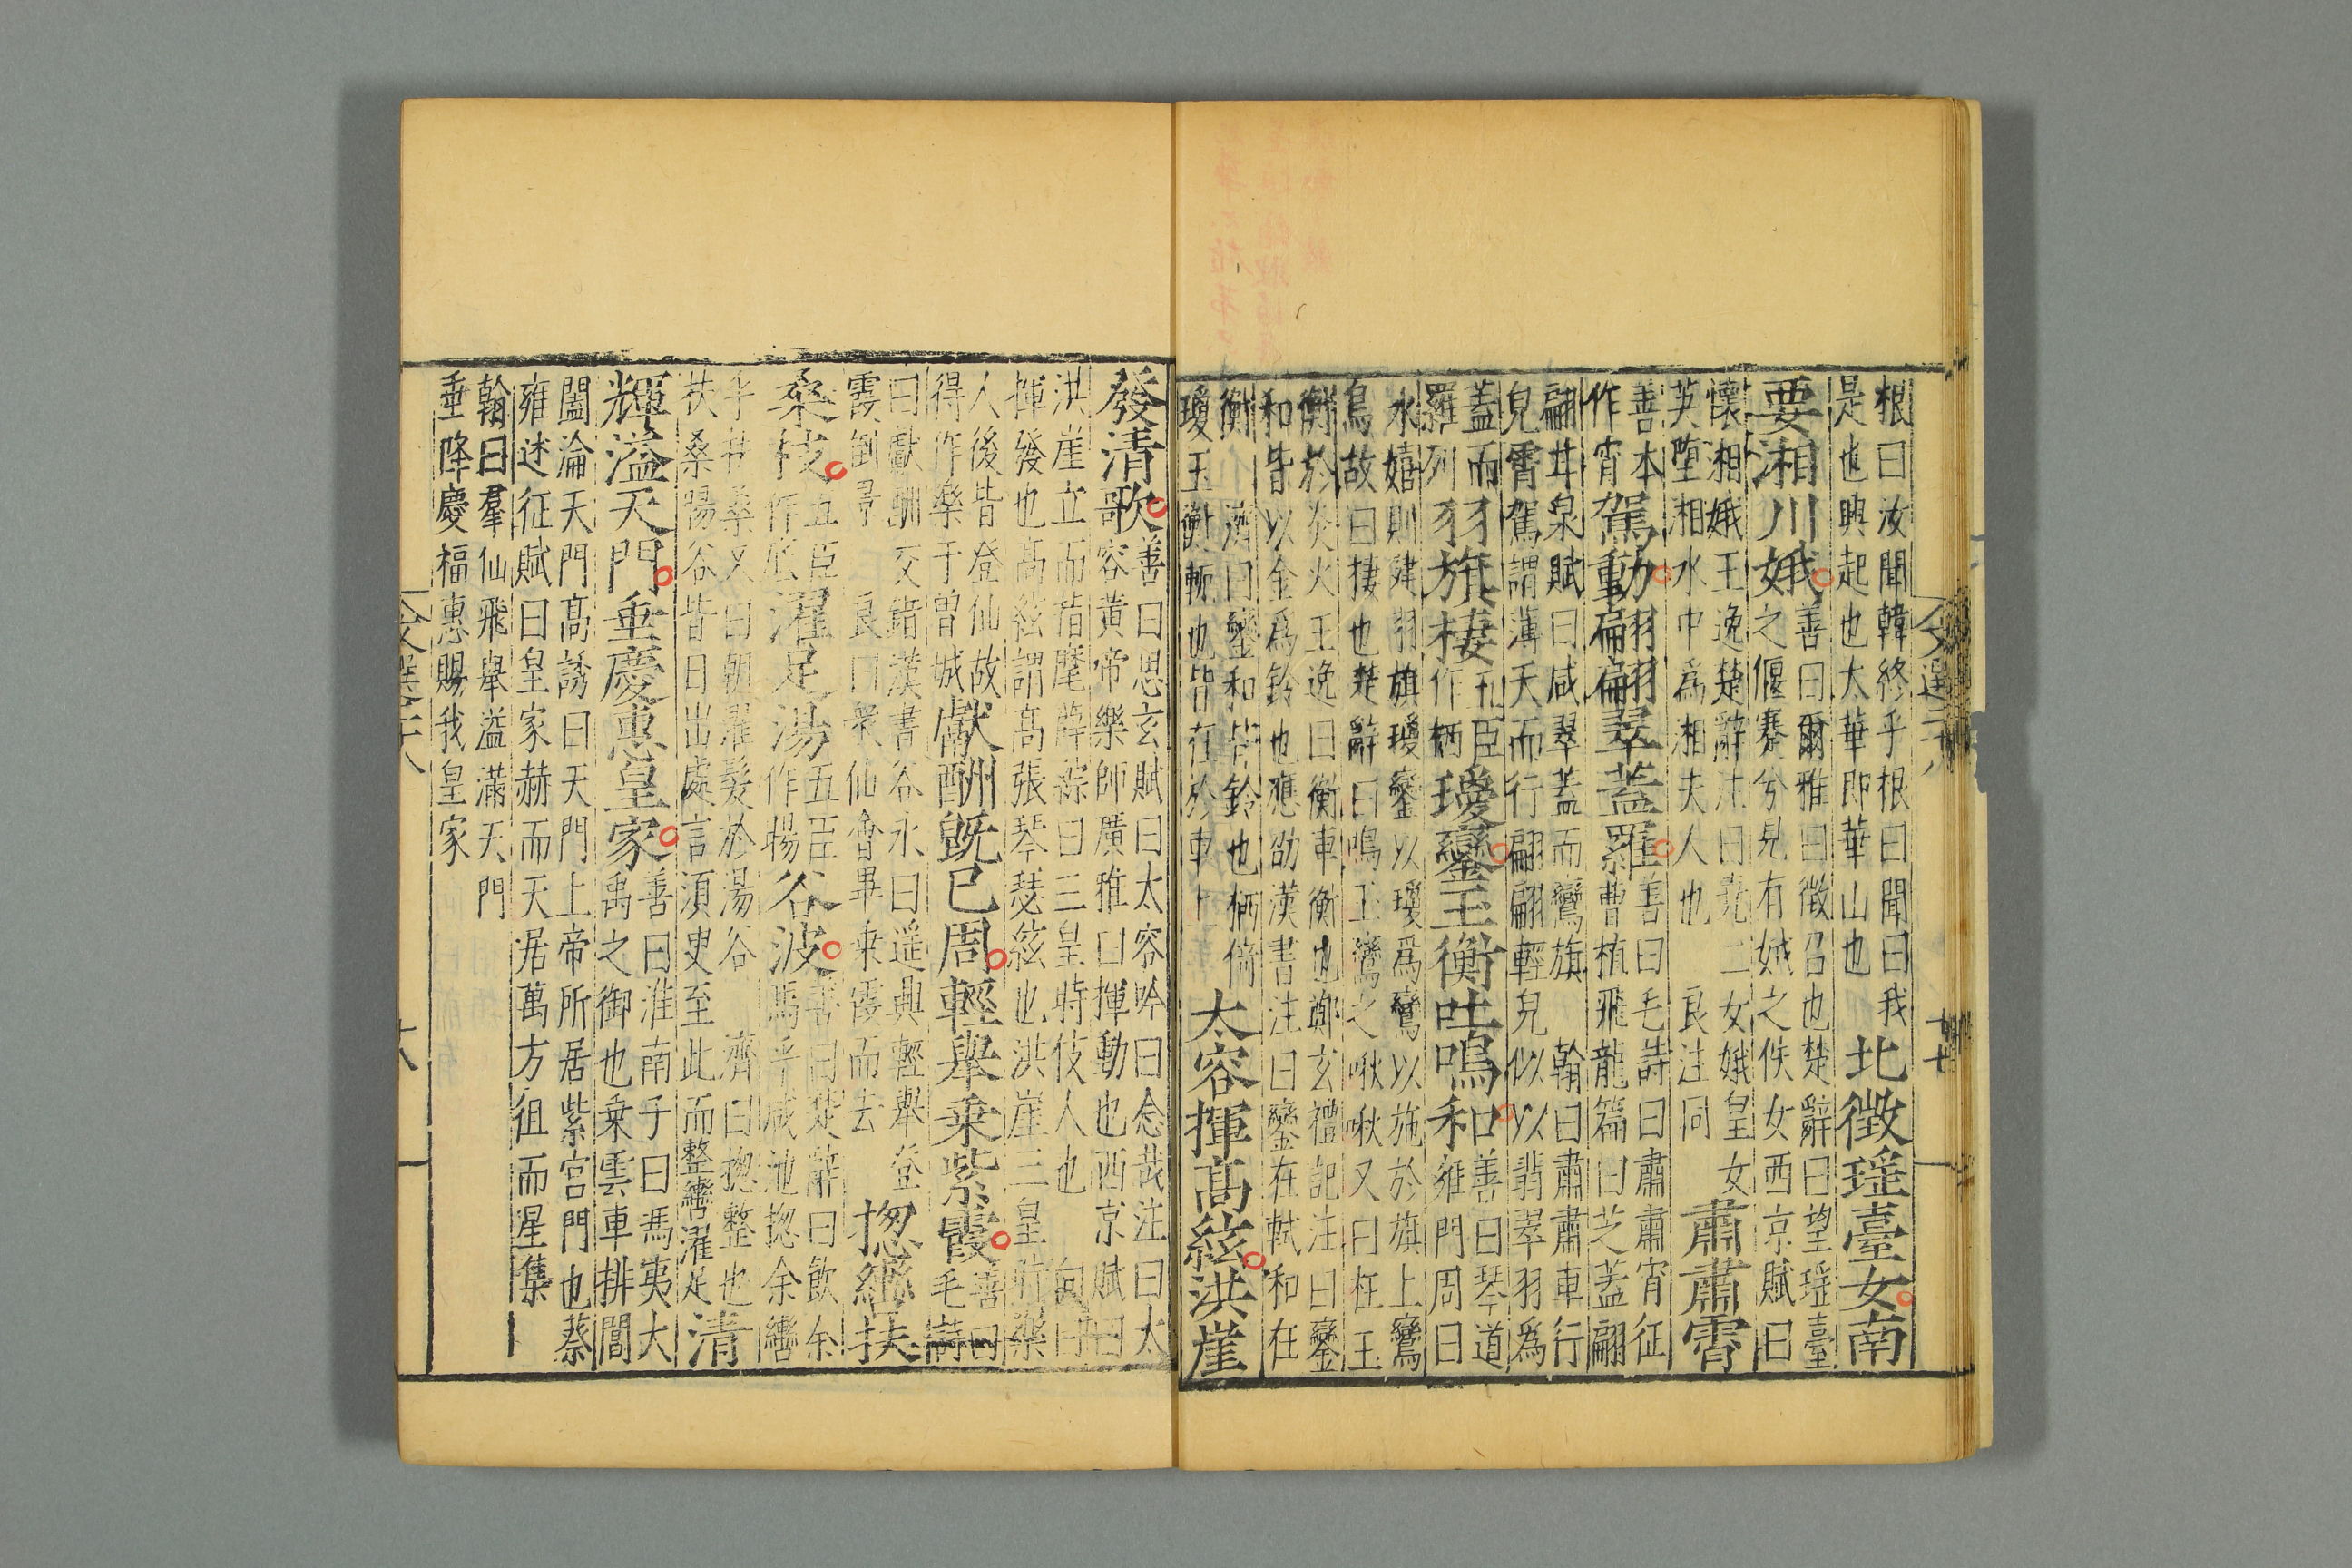 根曰汝聞韓終乎根曰聞曰我
是也興起也太華即華山也
北徵瑶臺女南
要湘川娥
善曰爾雅曰徵召也楚辭曰望瑶臺
之偃蹇兮見有娀之佚女西京賦曰
懷湘娥王逸楚辭注曰堯二女娥皇女
英墮湘水中為湘夫人也 良注同
肅肅霄
善本
作宵
駕動翩翩翠蓋羅
善曰毛詩曰肅肅宵征
曹植飛龍篇曰芝蓋翩
翩甘泉賦曰咸翠蓋而鸞旗 翰曰肅肅車行
皃霄駕謂薄天而行翩翩輕皃似以翡翠羽為
蓋而
羅列
羽旗棲
五臣
作栖
瓊鑾玉衡吐鳴和
善曰琴道
雍門周曰
水嬉則建羽旗瓊鑾以瓊為鸞以施於旗上鸞
鳥故曰棲也楚辭曰鳴玉鸞之啾啾又曰枉玉
衡於炎火王逸曰衡車衡也鄭玄禮記注曰鑾
和皆以金為鈴也應劭漢書注曰鑾在軾和在
衡 濟曰鑾和皆鈴也栖倚
瓊玉衡軛也皆在於車上
太容揮高絃洪崖
發清歌
善曰思玄賦曰太容吟曰念哉注曰太
容黄帝樂師廣雅曰揮動也西京賦曰
洪崖立而指麾薛綜曰三皇時伎人也 向曰
揮發也高絃謂高張琴瑟絃也洪崖三皇時樂
人後皆登仙故
得作樂于曾城
獻酬既已周輕舉乗紫霞
善曰
毛詩
曰獻酬交錯漢書谷永曰遥興輕舉登
霞倒景 良曰衆仙會畢乗霞而去
揔轡扶
桑枝
五臣
作底
濯足湯
五臣
作暘
谷波
善曰楚辭曰飲余
馬乎咸池揔余轡
乎扶桑又曰朝濯髪於湯谷 濟曰揔整也
扶桑暘谷皆日出處言須臾至此而整轡濯足
清
輝溢天門垂慶惠皇家
善曰淮南子曰馮夷大
禹之御也乗雲車排閶
闔淪天門高誘曰天門上帝所居紫宫門也蔡
雍述征賦曰皇家赫而天居萬方徂而星集
翰曰羣仙飛舉溢滿天門
垂降慶福惠賜我皇家